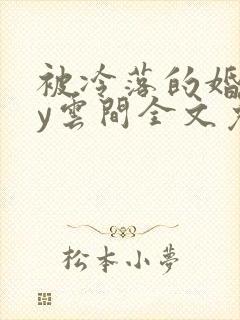 被冷落的婚
y雲間全文
松本小夢